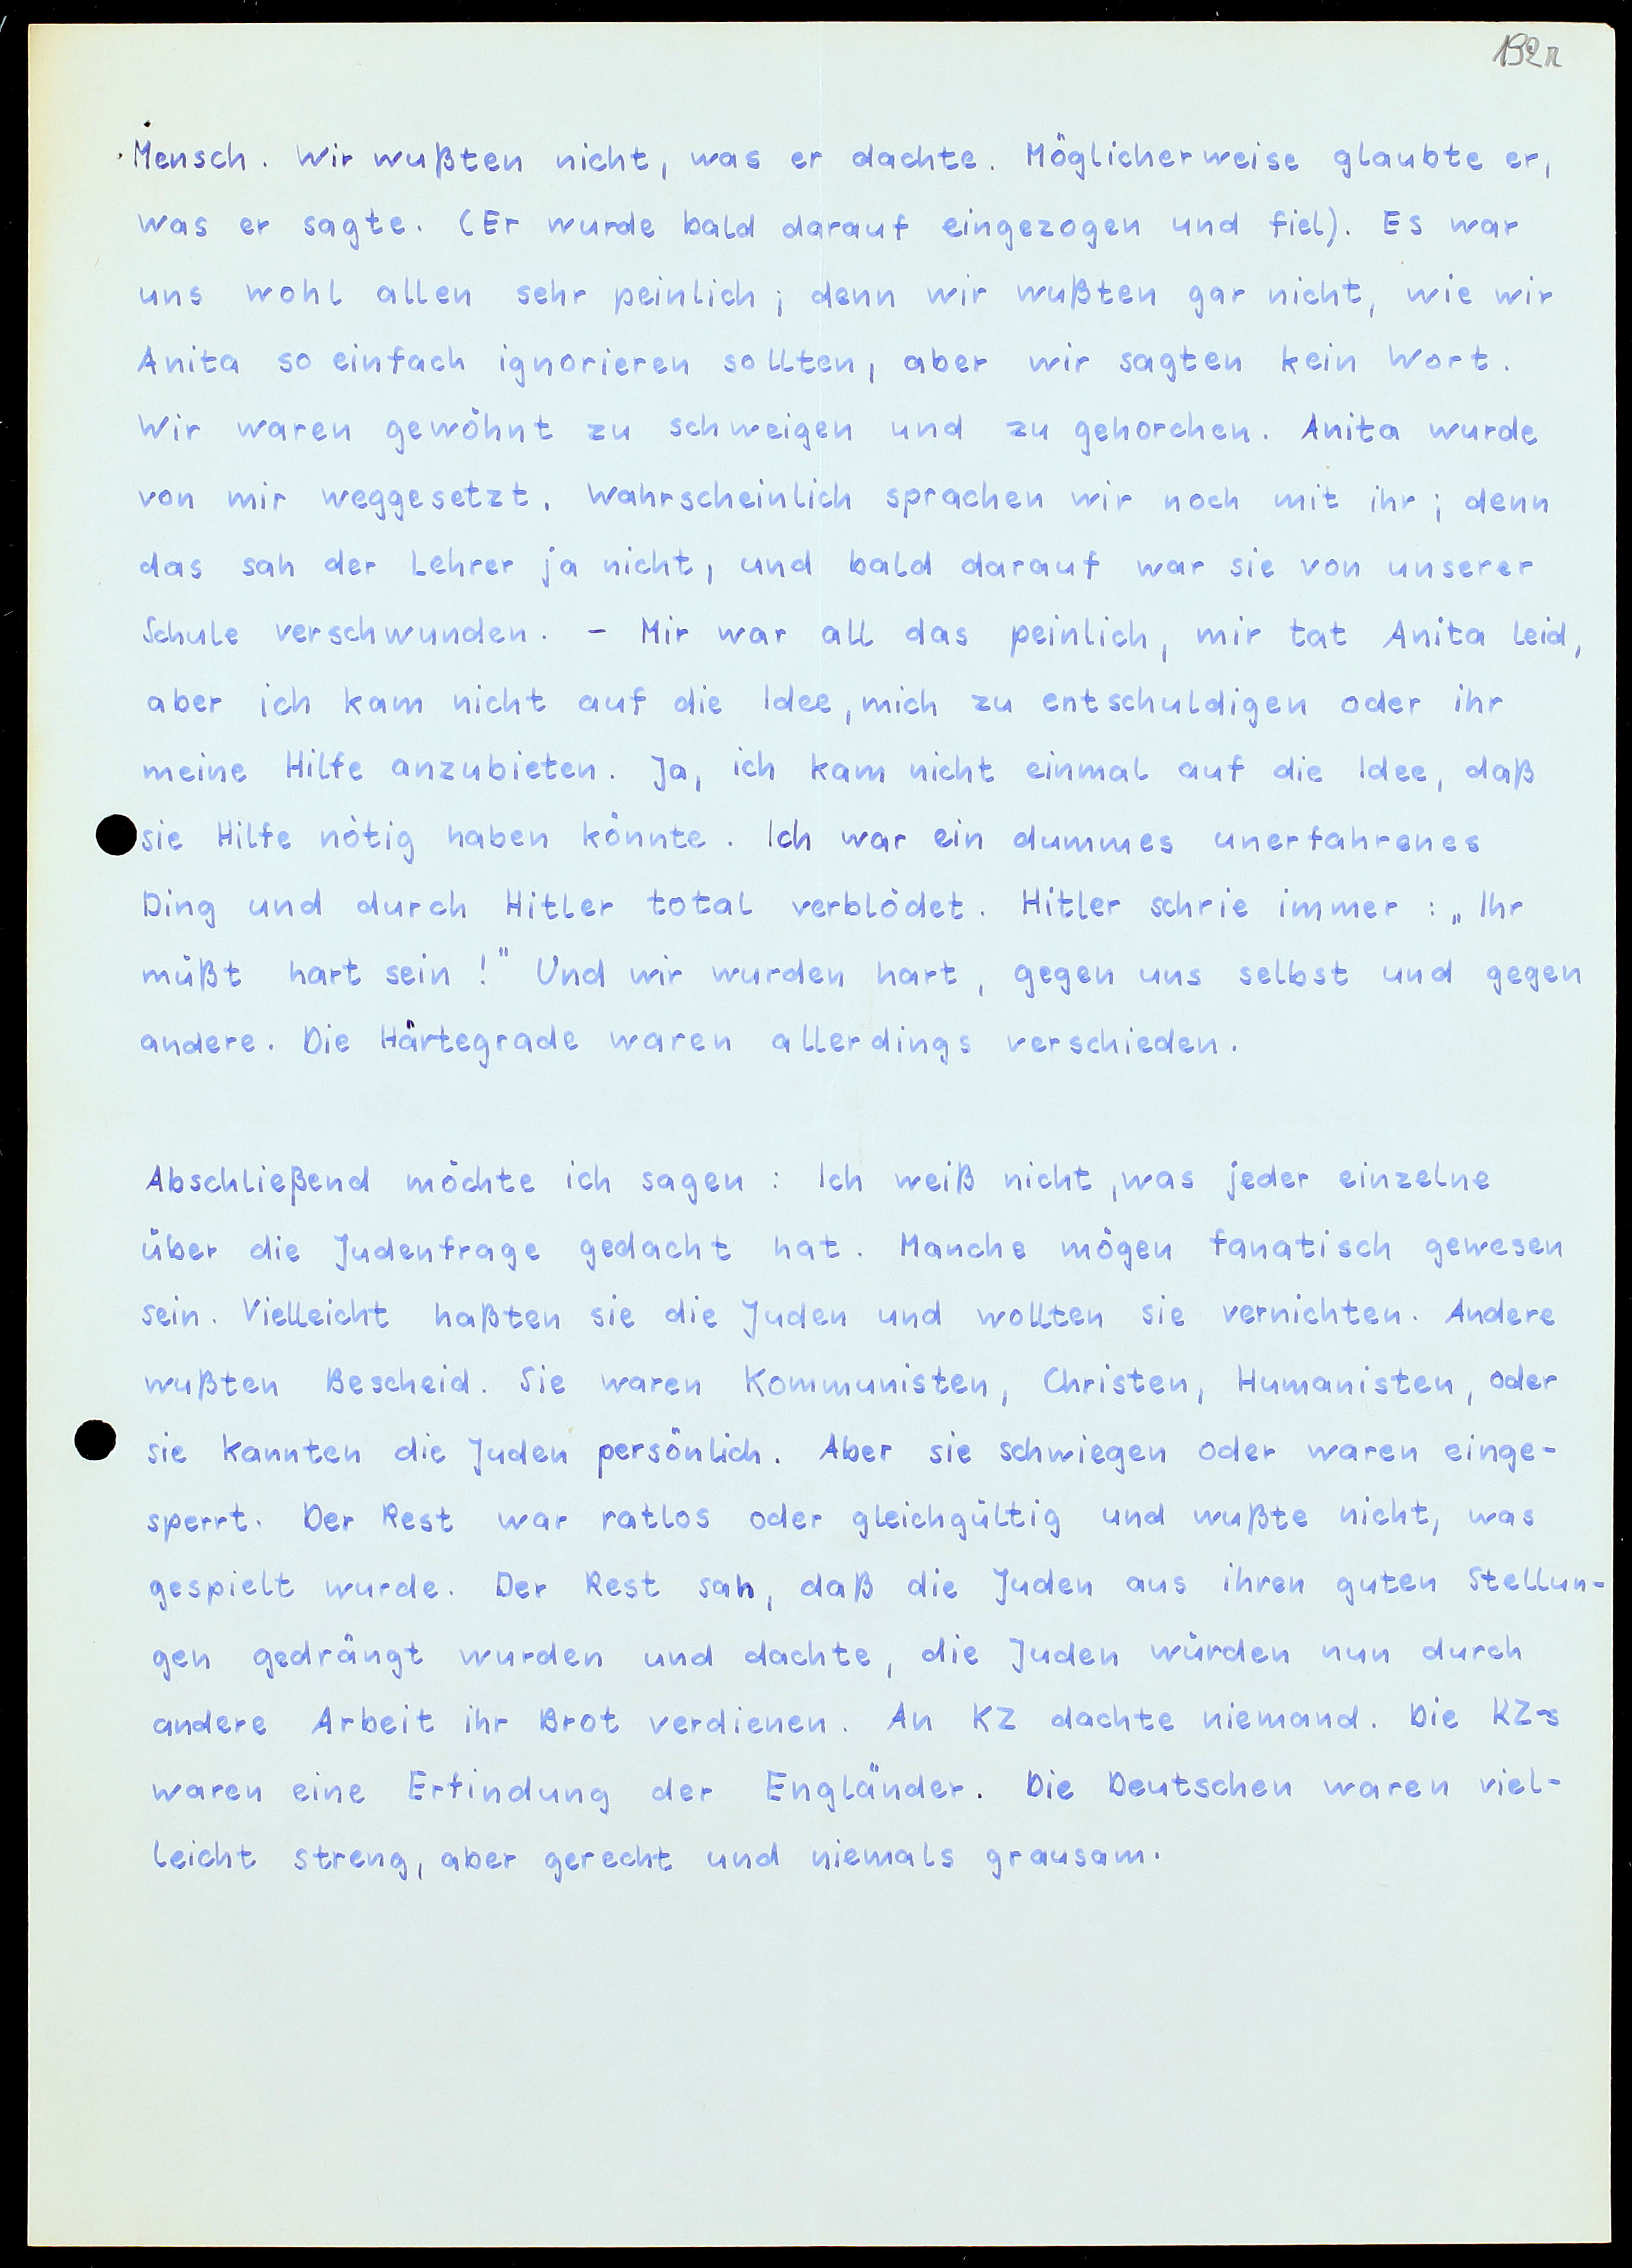 192r
Mensch. Wir wußten nicht, was er dachte. Möglicherweise glaubte er,
was er sagte. (Er wurde bald darauf eingezogen und fiel). Es war
uns wohl allen sehr peinlich; denn wir wußten gar nicht, wie wir
Anita so einfach ignorieren sollten, aber wir sagten kein Wort.
Wir waren gewöhnt zu schweigen und zu gehorchen. Anita wurde
von mir weggesetzt. Wahrscheinlich sprachen wir noch mit ihr; denn
das sah der Lehrer ja nicht, und bald darauf war sie von unserer
Schule verschwunden. - Mir war all das peinlich, mir tat Anita leid,
aber ich kam nicht auf die Idee, mich zu entschuldigen oder ihr
meine Hilfe anzubieten. Ja, ich kam nicht einmal auf die Idee, daß
sie Hilfe nötig haben könnte. Ich war ein dummes unerfahrenes
Ding und durch Hitler total verblödet. Hitler schrie immer: „Ihr
müßt hart sein!" Und wir wurden hart, gegen uns selbst und gegen
andere. Die Härtegrade waren allerdings verschieden.
Abschließend möchte ich sagen: Ich weiß nicht, was jeder einzelne
über die Judenfrage gedacht hat. Manche mögen fanatisch gewesen
sein. Vielleicht haßten sie die Juden und wollten sie vernichten. Andere
wußten Bescheid. Sie waren Kommunisten, Christen, Humanisten, oder
sie kannten die Juden persönlich. Aber sie schwiegen oder waren einge-
sperrt. Der Rest war ratlos oder gleichgültig und wußte nicht, was
gespielt wurde. Der Rest sah, daß die Juden aus ihren guten Stellun-
gen gedrängt wurden und dachte, die Juden würden nun durch
andere Arbeit ihr Brot verdienen. An KZ dachte niemand. Die KZ-s
waren eine Erfindung der Engländer. Die Deutschen waren viel-
leicht streng, aber gerecht und niemals grausam.